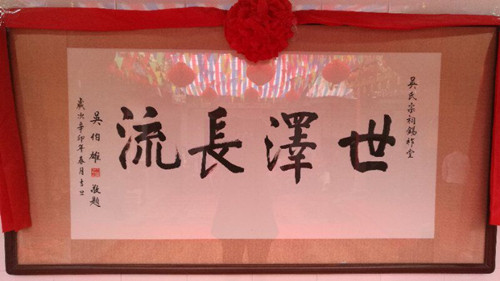 吳氏宗祠錫祚堂
世澤長流
吳伯雄 敬題
歲次辛卯年春月吉旦